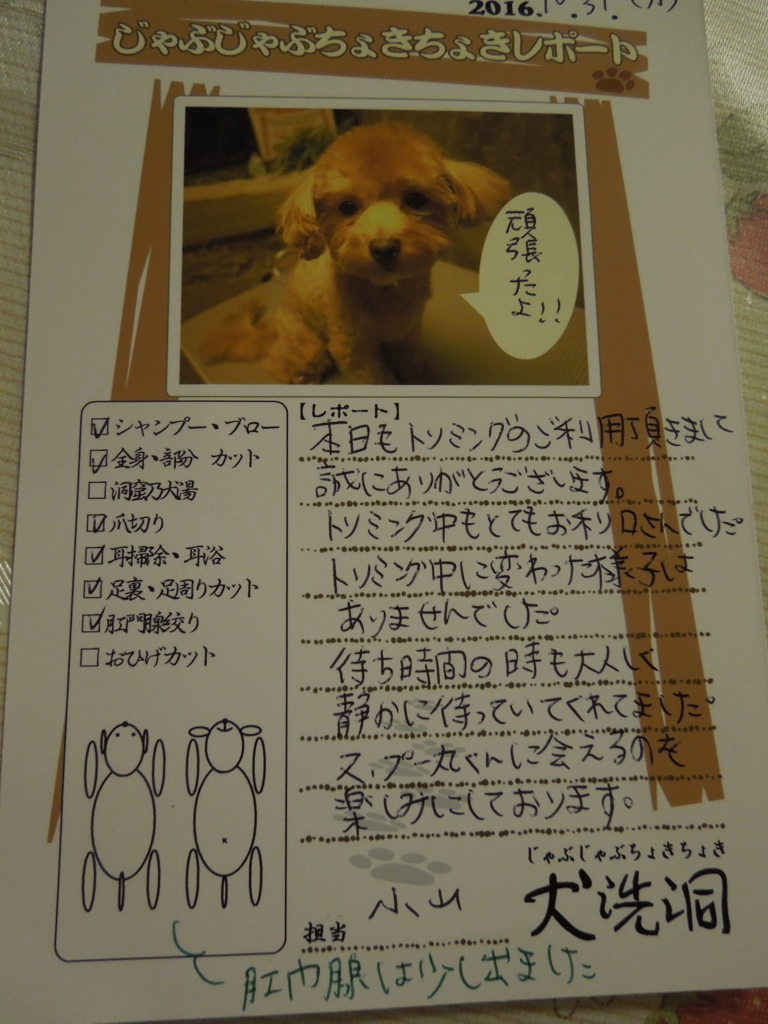 2016.10.31.(月)
じゃぶじゃぶちょきちょきレポート
頑張ったよ!!
☑シャンプー・ブロー
☑全身・部分 カット
☐洞窟乃犬湯
☑爪切り
☑耳掃除・耳浴
☑足裏・足周りカット
☑肛門腺絞り
☐おひげカット
【レポート】
本日もトリミングのご利用頂きまして
誠にありがとうございます。
トリミング中もとてもお利口さんでした。
トリミング中に変わった様子は
ありませんでした。
待ち時間の時も大人しく
静かに待っていてくれてました。
又、プー丸くんに会えるのを
楽しみにしております。
担当 小山
じゃぶじゃぶちょきちょき
犬洗洞
肛門腺は少し出ました